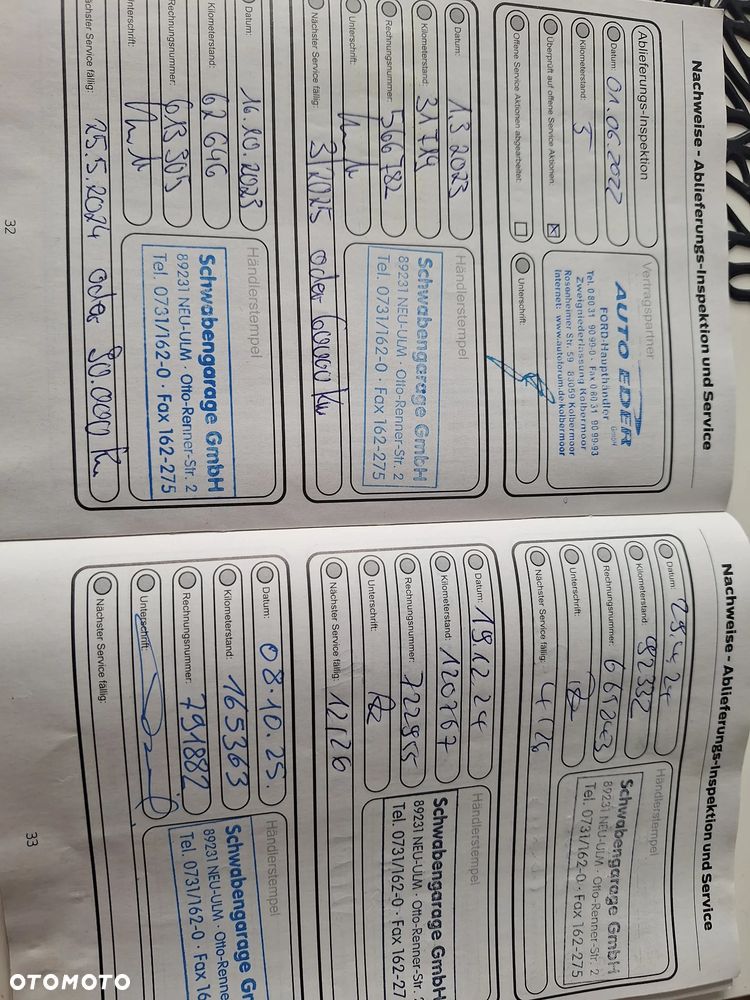 Nachweise - Ablieferungs-Inspektion und Service
Ablieferungs-Inspektion
Datum: 01.06.2022
Kilometerstand: 5
Überprüft auf offene Service Aktionen:
Offene Service Aktionen abgearbeitet:
Vertragspartner
AUTO EDER
GmbH
FORD-Haupthändler
Tel. 0 80 31 90 99-0 · Fax 0 80 31 90 99-93
Zweigniederlassung Kolbermoor
Rosenheimer Str. 59 83059 Kolbermoor
Internet: www.autoforum.de/kolbermoor
Unterschrift:
Datum: 1.3 2023
Kilometerstand: 31719
Rechnungsnummer: 566782
Unterschrift:
Nächster Service fällig: 3/2025 oder 60000 Km
Händlerstempel
Schwabengarage GmbH
89231 NEU-ULM · Otto-Renner-Str. 2
Tel. 0731/162-0 · Fax 162-275
Datum: 16.10.2023
Kilometerstand: 62646
Rechnungsnummer: 613305
Unterschrift:
Nächster Service fällig: 25.5.2024 oder 90.000 Km
Händlerstempel
Schwabengarage GmbH
89231 NEU-ULM · Otto-Renner-Str. 2
Tel. 0731/162-0 · Fax 162-275
32
Nachweise - Ablieferungs-Inspektion und Service
Datum: 29.4.24
Kilometerstand: 92332
Rechnungsnummer: 665243
Unterschrift:
Nächster Service fällig: 4/26
Händlerstempel
Schwabengarage GmbH
89231 NEU-ULM · Otto-Renner-Str. 2
Tel. 0731/162-0 · Fax 162-275
Datum: 19.12.24
Kilometerstand: 120767
Rechnungsnummer: 722955
Unterschrift:
Nächster Service fällig: 12/26
Händlerstempel
Schwabengarage GmbH
89231 NEU-ULM · Otto-Renner-Str. 2
Tel. 0731/162-0 · Fax 162-27
Datum: 08.10.25.
Kilometerstand: 165363
Rechnungsnummer: 791882
Unterschrift:
Nächster Service fällig:
Händlerstempel
Schwabengarage Gr
89231 NEU-ULM · Otto-Renner-S
Tel. 0731/162-0 · Fax 16
33
OTOMOTO